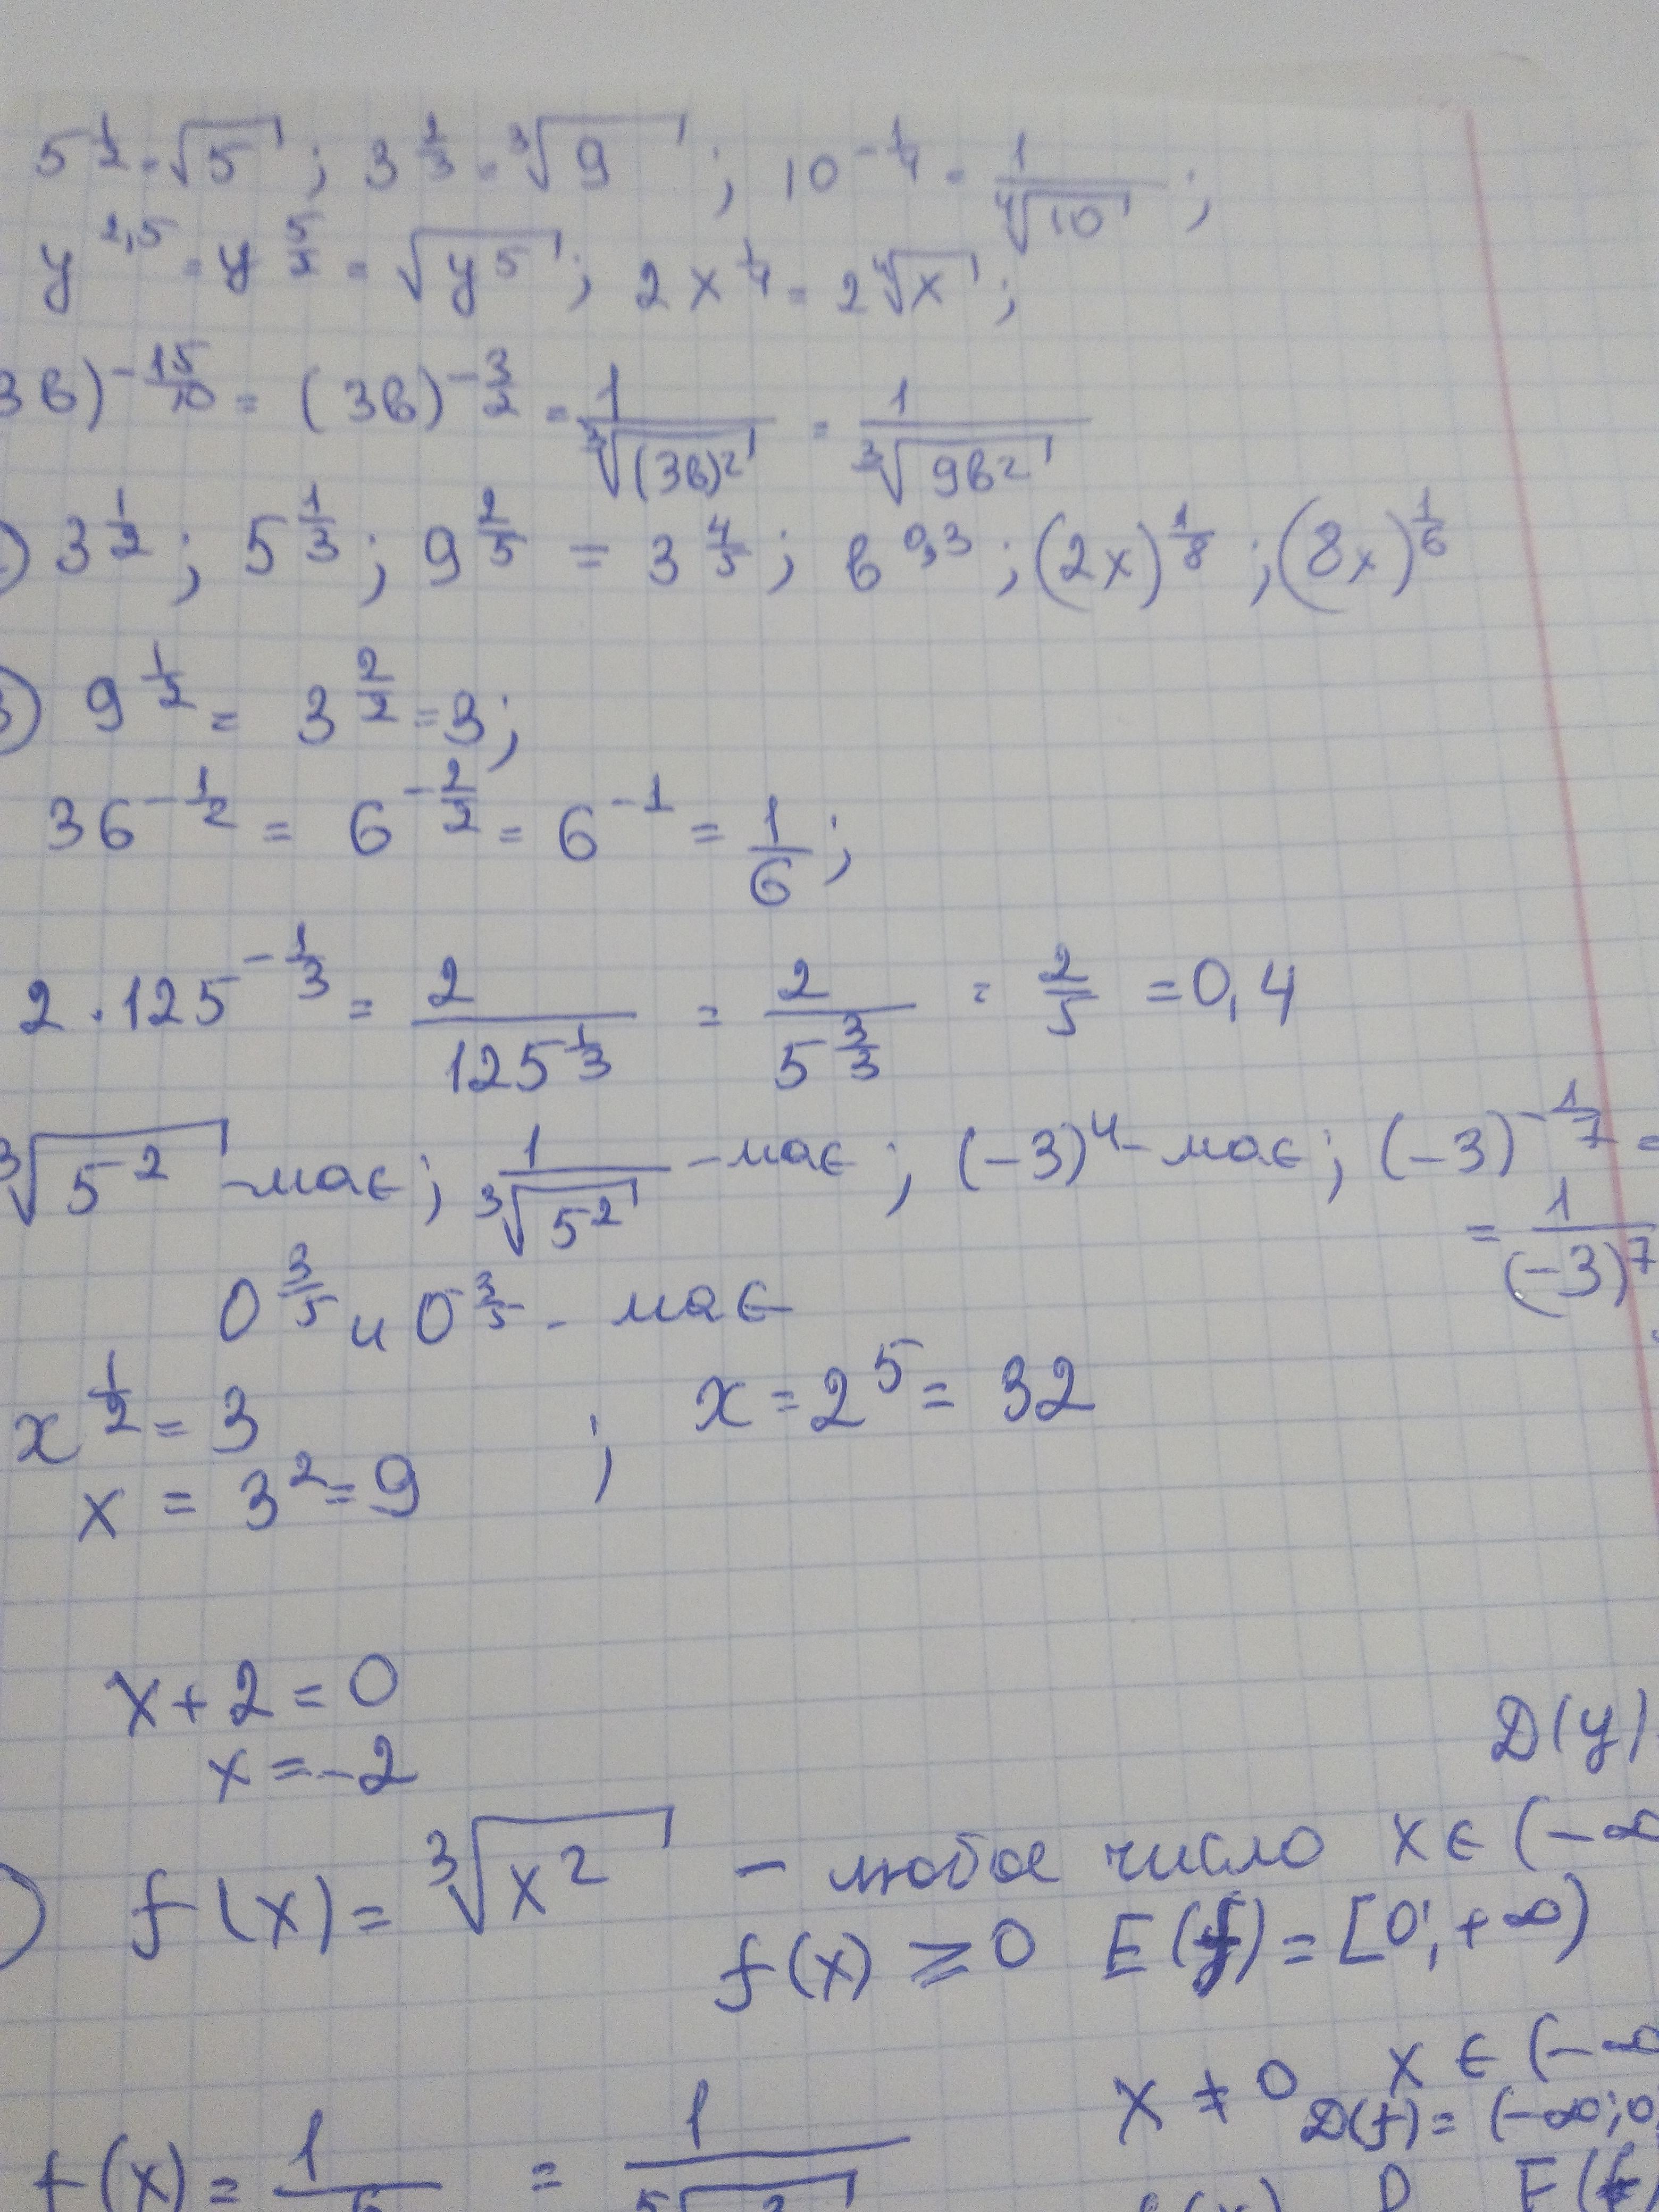 5^{1/2} = √5 ; 3^{2/3} = ∛9 ; 10^{-1/4} = 1/∜10 ;
y^{2,5} = y^{5/2} = √(y^5) ; 2x^{1/4} = 2∜x ;
3в)^{-15/10} = (3в)^{-3/2} = 1/∛((3в)^2) = 1/∛(9в^2)
) 3^{1/2} ; 5^{1/3} ; 9^{2/5} = 3^{4/5} ; в^{0,3} ; (2x)^{1/8} ; (8x)^{1/6}
) 9^{1/2} = 3^{2/2} = 3 ;
36^{-1/2} = 6^{-2/2} = 6^{-1} = 1/6 ;
2 · 125^{-1/3} = 2/125^{1/3} = 2/5^{3/3} = 2/5 = 0,4
∛(5^2) - має ; 1/∛(5^2) - має ; (-3)^4 - має ; (-3)^{-1/7} =
= 1/(-3)^7
0^{3/5} и 0^{3/5} - має
x^{1/2} = 3 ; x = 2^5 = 32
x = 3^2 = 9
x + 2 = 0
x = -2
D(y)
) f(x) = ∛(x^2) - любое число x ∈ (-∞
f(x) ≥ 0 E(f) = [0; +∞)
x ≠ 0 x ∈ (-∞
D(f) = (-∞; 0
f(x) = 1 = 1 E(f)